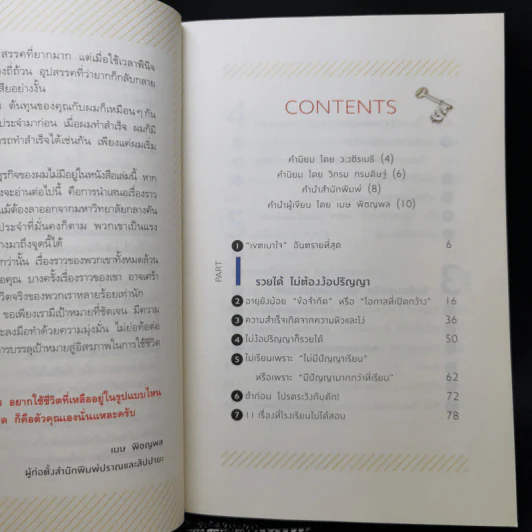 ปสรรคที่ยากมาก แต่เมื่อใช้เวลาพินิจ
งถี่ถ้วน อุปสรรคที่ว่ายากก็กลับกลาย
สียอย่างงั้น
ต้นทุนของคุณกับผมก็เหมือนๆ กัน
ประจำมาก่อน เมื่อผมทำสำเร็จ ผมก็มี
รถทำสำเร็จได้เช่นกัน เพียงแค่ผมเริ่ม
ุรกิจของผมไม่มีอยู่ในหนังสือเล่มนี้ หาก
งจะอ่านต่อไปนี้ คือการนำเสนอเรื่องราว
แม้ต้องลาออกจากมหาวิทยาลัยกลางคัน
ประจำที่มั่นคงก็ตาม พวกเขาเป็นแรง
างมาถึงจุดนี้ได้
กว่านั้น เรื่องราวของพวกเขาทั้งหมดล้วน
อคุณ บางครั้งเรื่องราวของเขา อาจเศร้า
วิตจริงของพวกเราหลายร้อยเท่านัก
ขอเพียงเรามีเป้าหมายที่ชัดเจน มีความ
ะลงมือทำด้วยความมุ่งมั่น ไม่ย่อท้อต่อ
ารบรรลุเป้าหมายสู่อิสรภาพในการใช้ชีวิต
อยากใช้ชีวิตที่เหลืออยู่ในรูปแบบไหน
ด ก็คือตัวคุณเองนั่นแหละครับ
เมษ พิชญพล
ผู้ก่อตั้งสำนักพิมพ์ปราณและสัปปายะ
CONTENTS
คำนิยม โดย ว.วชิรเมธี (4)
คำนิยม โดย วิกรม กรมดิษฐ์ (6)
คำนำสำนักพิมพ์ (8)
คำนำผู้เขียน โดย เมษ พิชญพล (10)
1 "เขตเบาใจ" อันตรายที่สุด 6
PART I รวยได้ ไม่ต้องง้อปริญญา
2 อายุยังน้อย "ข้อจำกัด" หรือ "โอกาสที่เปิดกว้าง" 16
3 ความสำเร็จเกิดจากความหิวและโง่ 36
4 ไม่ง้อปริญญาก็รวยได้ 50
5 ไม่เรียนเพราะ "ไม่มีปัญญาเรียน"
หรือเพราะ "มีปัญญามากกว่าที่เรียน" 62
6 ช้าก่อน โปรดระวังกับดัก! 72
7 11 เรื่องที่โรงเรียนไม่ได้สอน 78